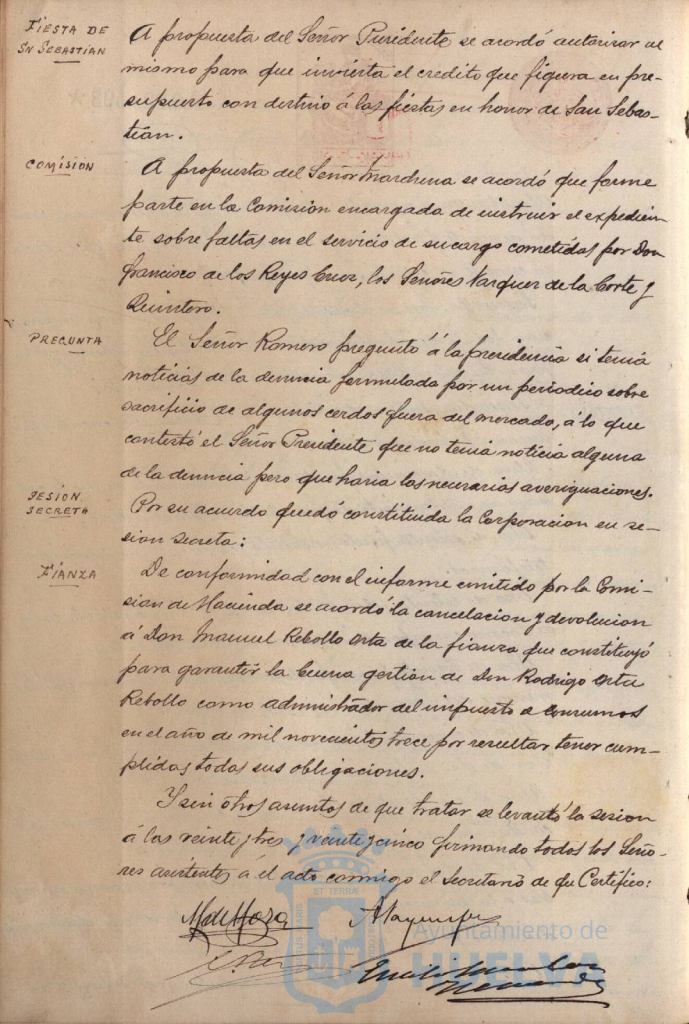 FIESTA DE
SN SEBASTIAN
A propuesta del Señor Presidente se acordó autorizar al
mismo para que invierta el credito que figura en pre-
supuesto con destino á las fiestas en honor de San Sebas-
tián.
COMISION
A propuesta del Señor Marchena se acordó que forme
parte en la Comisión encargada de instruir el expedien-
te sobre faltas en el servicio de su cargo cometidas por Don
Francisco de los Reyes Cruz, los Señores Vazquez de la Corte y
Quintero.
PREGUNTA
El Señor Romero preguntó á la presidencia si tenia
noticias de la denuncia formulada por un periodico sobre
sacrificio de algunos cerdos fuera del mercado, á lo que
contestó el Señor Presidente que no tenia noticia alguna
de la denuncia pero que haria las necesarias averiguaciones.
SESION
SECRETA
Por su acuerdo quedó constituida la Corporacion en se-
sion secreta:
FIANZA
De conformidad con el informe emitido por la Comi-
sion de Hacienda se acordó la cancelacion y devolucion
á Don Manuel Rebollo Orta de la fianza que constituyó
para garantir la buena gestion de Don Rodrigo Orta
Rebollo como administrador del impuesto de Consumos
en el año de mil novecientos trece por resultar tener cum-
plidas todas sus obligaciones.
Y sin otros asuntos de que tratar se levantó la sesion
á las veinte y tres y veinte y cinco firmando todos los Seño-
res asistentes á el acto conmigo el Secretario de que Certifico:
Ayuntamiento de
HUELVA